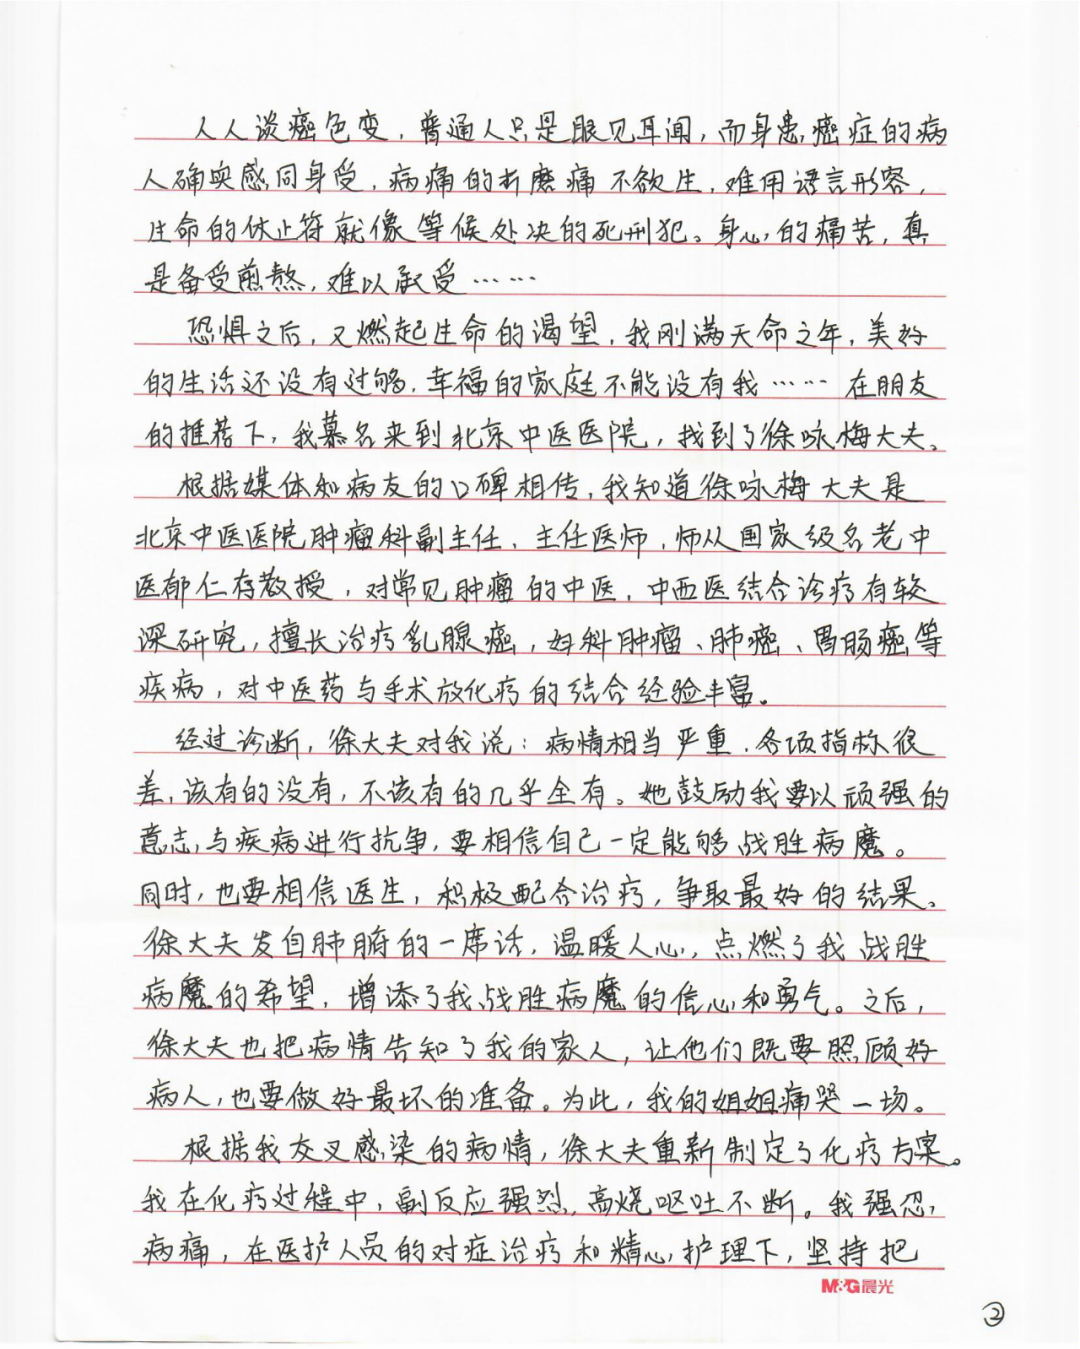 人人谈癌色变，普通人只是眼见耳闻，而身患癌症的病
人确实感同身受，病痛的折磨痛不欲生，难用语言形容，
生命的休止符就像等候处决的死刑犯。身心的痛苦，真
是备受煎熬，难以承受……
恐惧之后，又燃起生命的渴望，我刚满天命之年，美好
的生活还没有过够，幸福的家庭不能没有我……在朋友
的推荐下，我慕名来到北京中医医院，找到了徐咏梅大夫。
根据媒体和病友的口碑相传，我知道徐咏梅大夫是
北京中医医院肿瘤科副主任、主任医师，师从国家级名老中
医郁仁存教授，对常见肿瘤的中医，中西医结合诊疗有较
深研究，擅长治疗乳腺癌，妇科肿瘤、肺癌、胃肠癌等
疾病，对中医药与手术放化疗的结合经验丰富。
经过诊断，徐大夫对我说：病情相当严重，各项指标很
差，该有的没有，不该有的几乎全有。她鼓励我要以顽强的
意志与疾病进行抗争，要相信自己一定能够战胜病魔。
同时，也要相信医生，积极配合治疗，争取最好的结果。
徐大夫发自肺腑的一席话，温暖人心，点燃了我战胜
病魔的希望，增添了我战胜病魔的信心和勇气。之后，
徐大夫也把病情告知了我的家人，让他们既要照顾好
病人，也要做好最坏的准备。为此，我的姐姐痛哭一场。
根据我交叉感染的病情，徐大夫重新制定了化疗方案。
我在化疗过程中，副反应强烈，高烧呕吐不断。我强忍
病痛，在医护人员的对症治疗和精心护理下，坚持把
M&G晨光
②